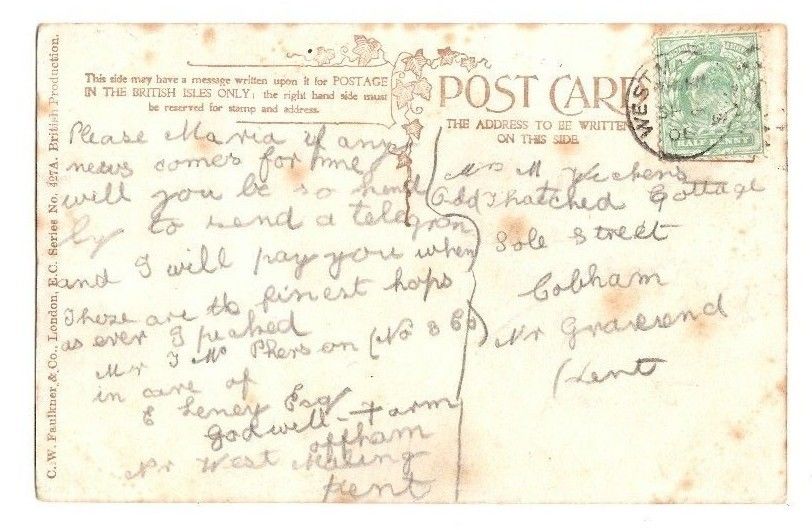 C. W. Faulkner & Co., London, E.C. Series No. 427A. British Production.
This side may have a message written upon it for POSTAGE
IN THE BRITISH ISLES ONLY; the right hand side must
be reserved for stamp and address.
POST CARD
THE ADDRESS TO BE WRITTEN
ON THIS SIDE.
WEST
HALFPENNY
Please Maria if any
news comes for me
will you be so kind
ly to send a telegram
and I will pay you when
These are the finest hops
as ever I picked
Mr J McPherson (No 3 Co)
in care of
E Leney Esq
Godwell Farm
offham
Nr West Malling
Kent
Mrs M
Old Thatched Cottage
Sole Street
Cobham
Nr Gravesend
Kent